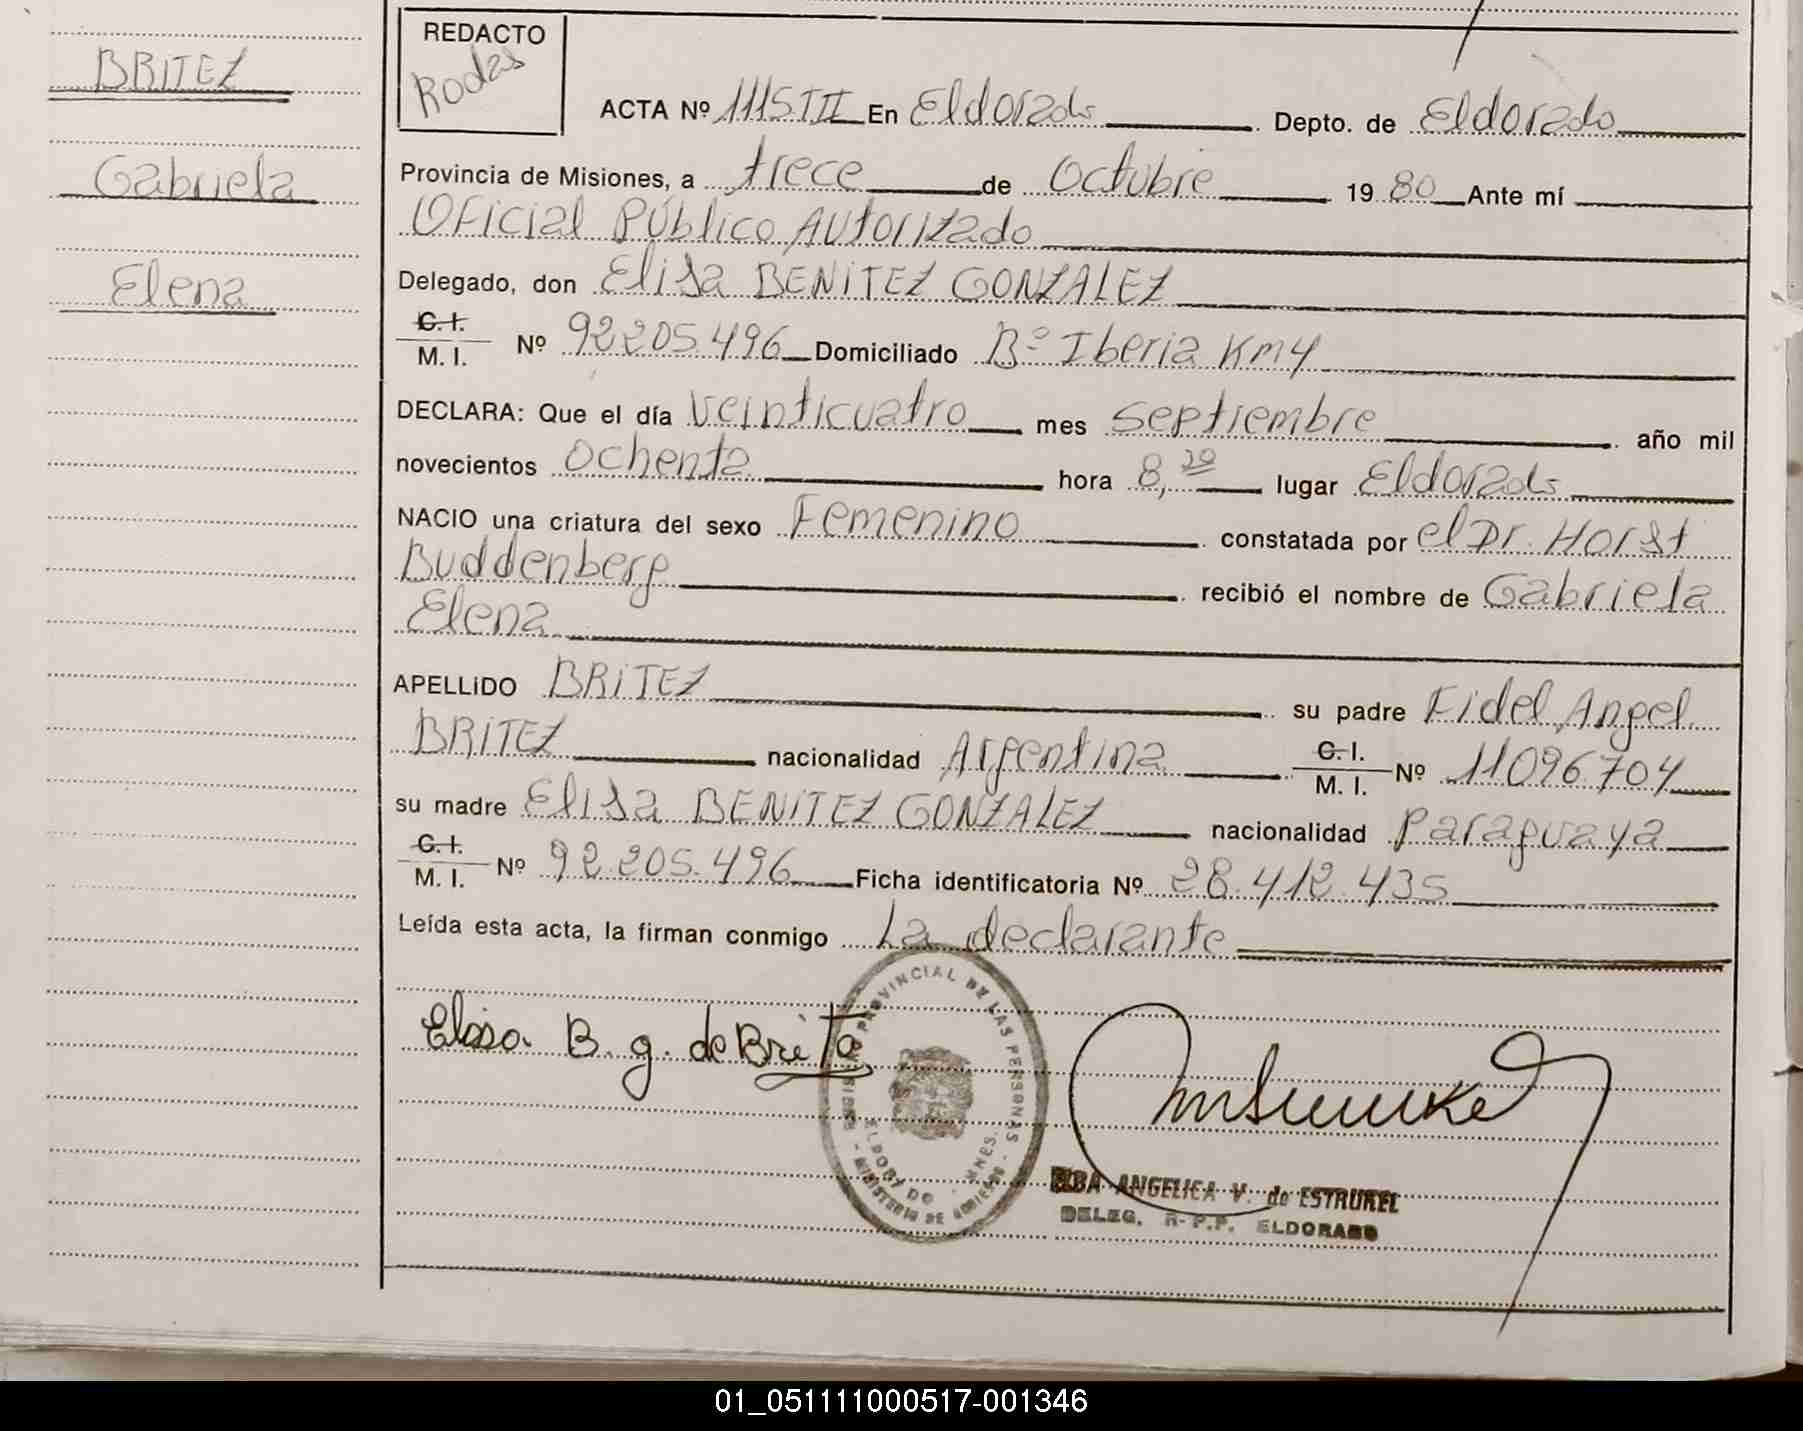 REDACTO
Rodas
BRITEZ
Gabriela
Elena
ACTA Nº 1115 TII En Eldorado Depto. de Eldorado
Provincia de Misiones, a trece de Octubre 1980 Ante mí
Oficial Público Autorizado
Delegado, don Elisa BENITEZ GONZALEZ
C.I. / M. I. Nº 92.205.496 Domiciliado Bº Iberia Km 4
DECLARA: Que el día Veinticuatro mes septiembre año mil
novecientos ochenta hora 8,20 lugar Eldorado
NACIO una criatura del sexo Femenino constatada por el Dr. Horst
Buddenberg recibió el nombre de Gabriela
Elena
APELLIDO BRITEZ su padre Fidel Angel
BRITEZ nacionalidad Argentina C.I. / M. I. Nº 11096704
su madre Elisa BENITEZ GONZALEZ nacionalidad paraguaya
C.I. / M. I. Nº 92.205.496 Ficha identificatoria Nº 28.412.435
Leída esta acta, la firman conmigo La declarante
Elisa B. g. de Brite
PROVINCIAL DE LAS PERSONAS
MINISTERIO DE GOBIERNO
ELDORADO - MNES.
ELBA ANGELICA V. de ESTRUREL
DELEG. R.P.P. ELDORADO
01_051111000517-001346